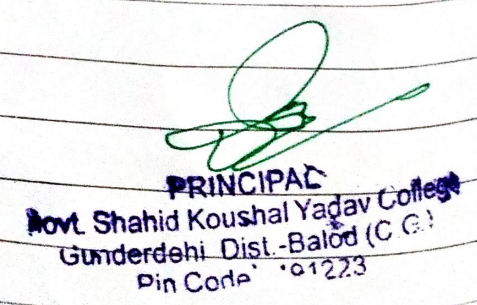 PRINCIPAL
Govt. Shahid Koushal Yadav College
Gunderdehi Dist.-Balod (C.G.)
Pin Code 491223